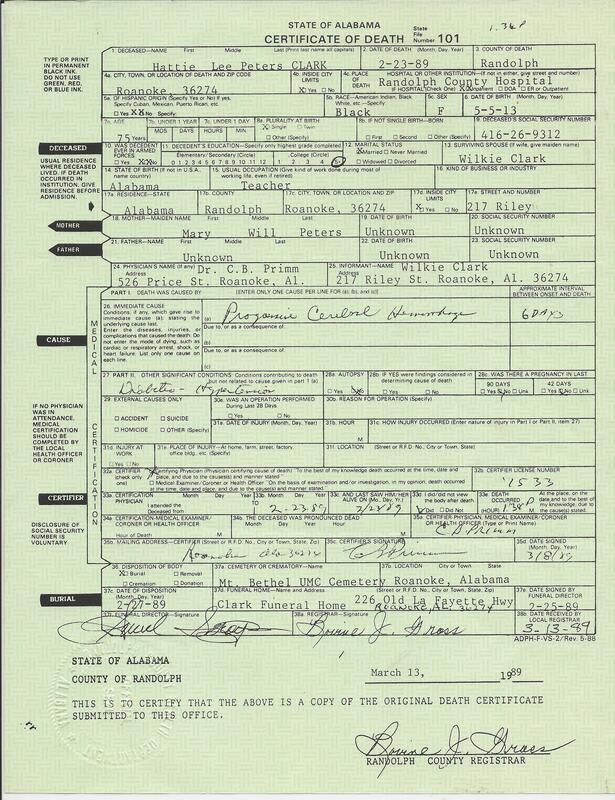 STATE OF ALABAMA
CERTIFICATE OF DEATH State File Number 101
1.36P
TYPE OR PRINT IN PERMANENT BLACK INK. DO NOT USE GREEN, RED, OR BLUE INK.
1. DECEASED—NAME First Middle Last (Print last name all capitals) 2. DATE OF DEATH (Month, Day, Year) 3. COUNTY OF DEATH
Hattie Lee Peters CLARK 2-23-89 Randolph
4a. CITY, TOWN, OR LOCATION OF DEATH AND ZIP CODE 4b. INSIDE CITY LIMITS 4c. PLACE OF DEATH HOSPITAL OR OTHER INSTITUTION—(If not in either, give street and number)
Roanoke 36274 Yes No Randolph County Hospital
IF HOSPITAL (Check One) Inpatient DOA ER or Outpatient
5a. OF HISPANIC ORIGIN (Specify Yes or No) If yes, Specify Cuban, Mexican, Puerto Rican, etc. 5b. RACE—American Indian, Black White, etc.—Specify 5c. SEX 6. DATE OF BIRTH (Month, Day, Year)
Yes No Specify: Black F 5-5-13
7a. AGE 7b. UNDER 1 YEAR 7c. UNDER 1 DAY 8a. PLURALITY AT BIRTH 8b. IF NOT SINGLE BIRTH—BORN 9. DECEASED'S SOCIAL SECURITY NUMBER
75 Years MOS DAYS HOURS MIN. Single Twin Other (Specify) First Second Other (Specify) 416-26-9312
DECEASED
10. WAS DECEDENT EVER IN ARMED FORCES 11. DECEDENT'S EDUCATION—Specify only highest grade completed 12. MARITAL STATUS 13. SURVIVING SPOUSE (If wife, give maiden name)
Yes No Elementary/Secondary (Circle) College (Circle) Married Never Married Wilkie Clark
0 1 2 3 4 5 6 7 8 9 10 11 12 1 2 3 4 Widowed Divorced
USUAL RESIDENCE WHERE DECEASED LIVED. IF DEATH OCCURRED IN INSTITUTION, GIVE RESIDENCE BEFORE ADMISSION.
14. STATE OF BIRTH (If not in U.S.A., name country) 15. USUAL OCCUPATION (Give kind of work done during most of working life, even if retired) 16. KIND OF BUSINESS OR INDUSTRY
Alabama Teacher
17a. RESIDENCE—STATE 17b. COUNTY 17c. CITY, TOWN, OR LOCATION AND ZIP 17d. INSIDE CITY LIMITS 17e. STREET AND NUMBER
Alabama Randolph Roanoke, 36274 Yes No 217 Riley
MOTHER
18. MOTHER—MAIDEN NAME First Middle Last 19. DATE OF BIRTH 20. SOCIAL SECURITY NUMBER
Mary Will Peters Unknown Unknown
FATHER
21. FATHER—NAME First Middle Last 22. DATE OF BIRTH 23. SOCIAL SECURITY NUMBER
Unknown Unknown Unknown
24. PHYSICIAN'S NAME (If any) Dr. C.B. Primm 25. INFORMANT—NAME Wilkie Clark
Address 526 Price St. Roanoke, Al. Address 217 Riley St. Roanoke, Al. 36274
PART I. DEATH WAS CAUSED BY (ENTER ONLY ONE CAUSE PER LINE FOR (a), (b), and (c)) APPROXIMATE INTERVAL BETWEEN ONSET AND DEATH
CAUSE
MEDICAL CERTIFICATION
26. IMMEDIATE CAUSE
Conditions if any, which gave rise to immediate cause (a), stating the underlying cause last.
Enter the diseases, injuries, or complications that caused the death. Do not enter the mode of dying, such as cardiac or respiratory arrest, shock, or heart failure. List only one cause on each line.
(a) Progressive Cerebral Hemorrhage 6 DAYS
Due to, or as a consequence of:
(b)
Due to, or as a consequence of:
(c)
27. PART II. OTHER SIGNIFICANT CONDITIONS: Conditions contributing to death but not related to cause given in part 1 (a) 28a. AUTOPSY 28b. IF YES were findings considered in determining cause of death 28c. WAS THERE A PREGNANCY IN LAST
Diabetes - Hypertension Yes No Yes No 90 DAYS Yes No Unk 42 DAYS Yes No Unk
IF NO PHYSICIAN WAS IN ATTENDANCE, MEDICAL CERTIFICATION SHOULD BE COMPLETED BY THE LOCAL HEALTH OFFICER OR CORONER
29. EXTERNAL CAUSES ONLY 30a. WAS AN OPERATION PERFORMED During Last 28 Days 30b. REASON FOR OPERATION (Specify)
ACCIDENT SUICIDE Yes No
HOMICIDE OTHER (Specify) 31a. DATE OF INJURY (Month, Day, Year) 31b. HOUR 31c. HOW INJURY OCCURRED (Enter nature of injury in Part I or Part II, item 27)
31d. INJURY AT WORK 31e. PLACE OF INJURY—At home, farm, street, factory, office bldg., etc. (Specify) 31f. LOCATION (Street or R.F.D. No., City or Town, State)
Yes No
CERTIFIER
32a. CERTIFIER (Check only one) Certifying Physician (Physician certifying cause of death) "To the best of my knowledge death occurred at the time, date and place, and due to the cause(s) and manner stated" 32b. CERTIFIER LICENSE NUMBER
Medical Examiner/Coroner or Health Officer "On the basis of examination and/or investigation, in my opinion, death occurred at the time, date and place, and due to the cause(s) and manner stated." 1533
33a. CERTIFICATION PHYSICIAN Month Day Year 33b. Month Day Year 33c. AND LAST SAW HIM/HER ALIVE ON (Mo. Day, Yr.) 33d. I did/did not view the body after death. 33e. DEATH OCCURRED At the place, on the date and to the best of my knowledge, due to the cause(s) stated.
I attended the Deceased from To 2-23 89 2/23/89 Did Did Not (HOUR)
DISCLOSURE OF SOCIAL SECURITY NUMBER IS VOLUNTARY
34a. CERTIFICATION-MEDICAL EXAMINER/CORONER OR HEALTH OFFICER 34b. THE DECEASED WAS PRONOUNCED DEAD Month Day Year Hour 35a. CERTIFIER—PHYSICIAN, MEDICAL EXAMINER/CORONER OR HEALTH OFFICER (Type or Print Name)
Hour of Death M M C B PRIMM
35b. MAILING ADDRESS—CERTIFIER (Street or R.F.D. No., City or Town, State, Zip) 35c. CERTIFIER'S SIGNATURE 35d. DATE SIGNED (Month, Day, Year)
Roanoke Ala 36274 3/8/89
BURIAL
36. DISPOSITION OF BODY 37a. CEMETERY OR CREMATORY—Name 37b. LOCATION City or Town State
Burial Removal Cremation Donation Mt. Bethel UMC Cemetery Roanoke, Alabama
37c. DATE OF DISPOSITION (Month, Day, Year) 37d. FUNERAL HOME—Name and Address (Street or R.F.D. No., City or Town, State, Zip) 37e. DATE SIGNED BY FUNERAL DIRECTOR
2-27-89 Clark Funeral Home 226 Old La Fayette Hwy 2-25-89
ROANOKE, AL 36274
37f. FUNERAL DIRECTOR—Signature 38a. REGISTRAR—Signature 38b. DATE RECEIVED BY LOCAL REGISTRAR
Bonnie J. Gross 3-13-89
ADPH-F-VS-2/Rev. 5-88
STATE OF ALABAMA
COUNTY OF RANDOLPH March 13, 1989
THIS IS TO CERTIFY THAT THE ABOVE IS A COPY OF THE ORIGINAL DEATH CERTIFICATE
SUBMITTED TO THIS OFFICE.
Bonnie J. Gross
RANDOLPH COUNTY REGISTRAR